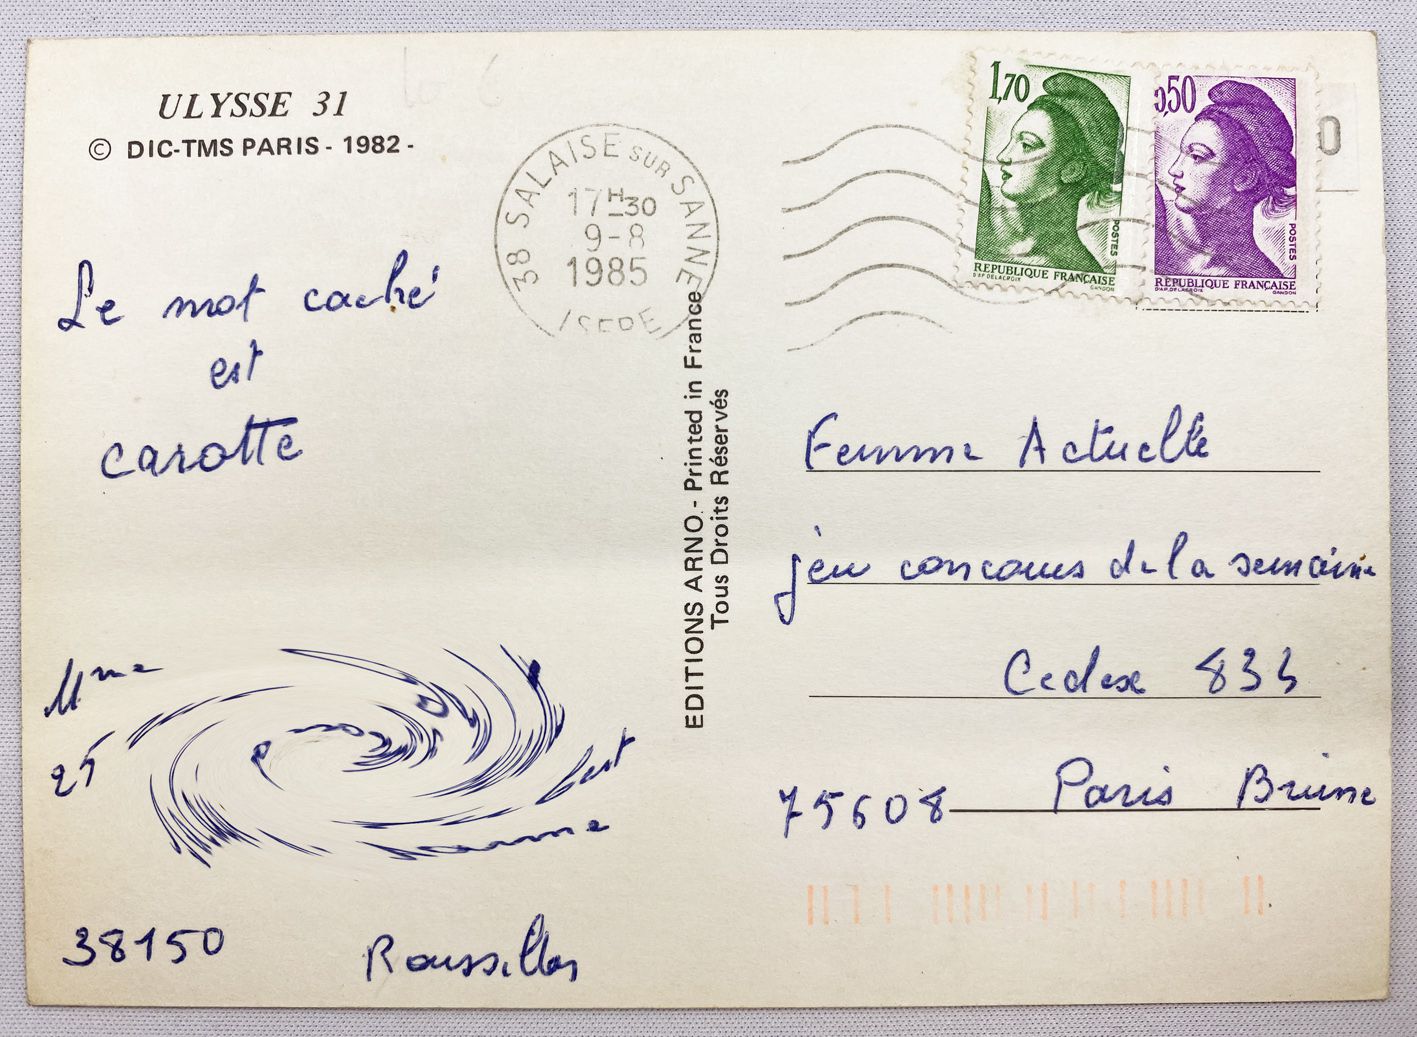 ULYSSE 31
© DIC-TMS PARIS - 1982 -
38 SALAISE SUR SANNE
17H30
9-8
1985
ISERE
1,70
POSTES
RÉPUBLIQUE FRANÇAISE
D'AP. DELACROIX GANDON
0,50
POSTES
RÉPUBLIQUE FRANÇAISE
D'AP. DELACROIX GANDON
0
Le mot caché
est
carotte
EDITIONS ARNO.- Printed in France
Tous Droits Réservés
Femme Actuelle
jeu concours de la semaine
Cedex 835
75608 Paris Brune
Mme
25
38150 Roussillon